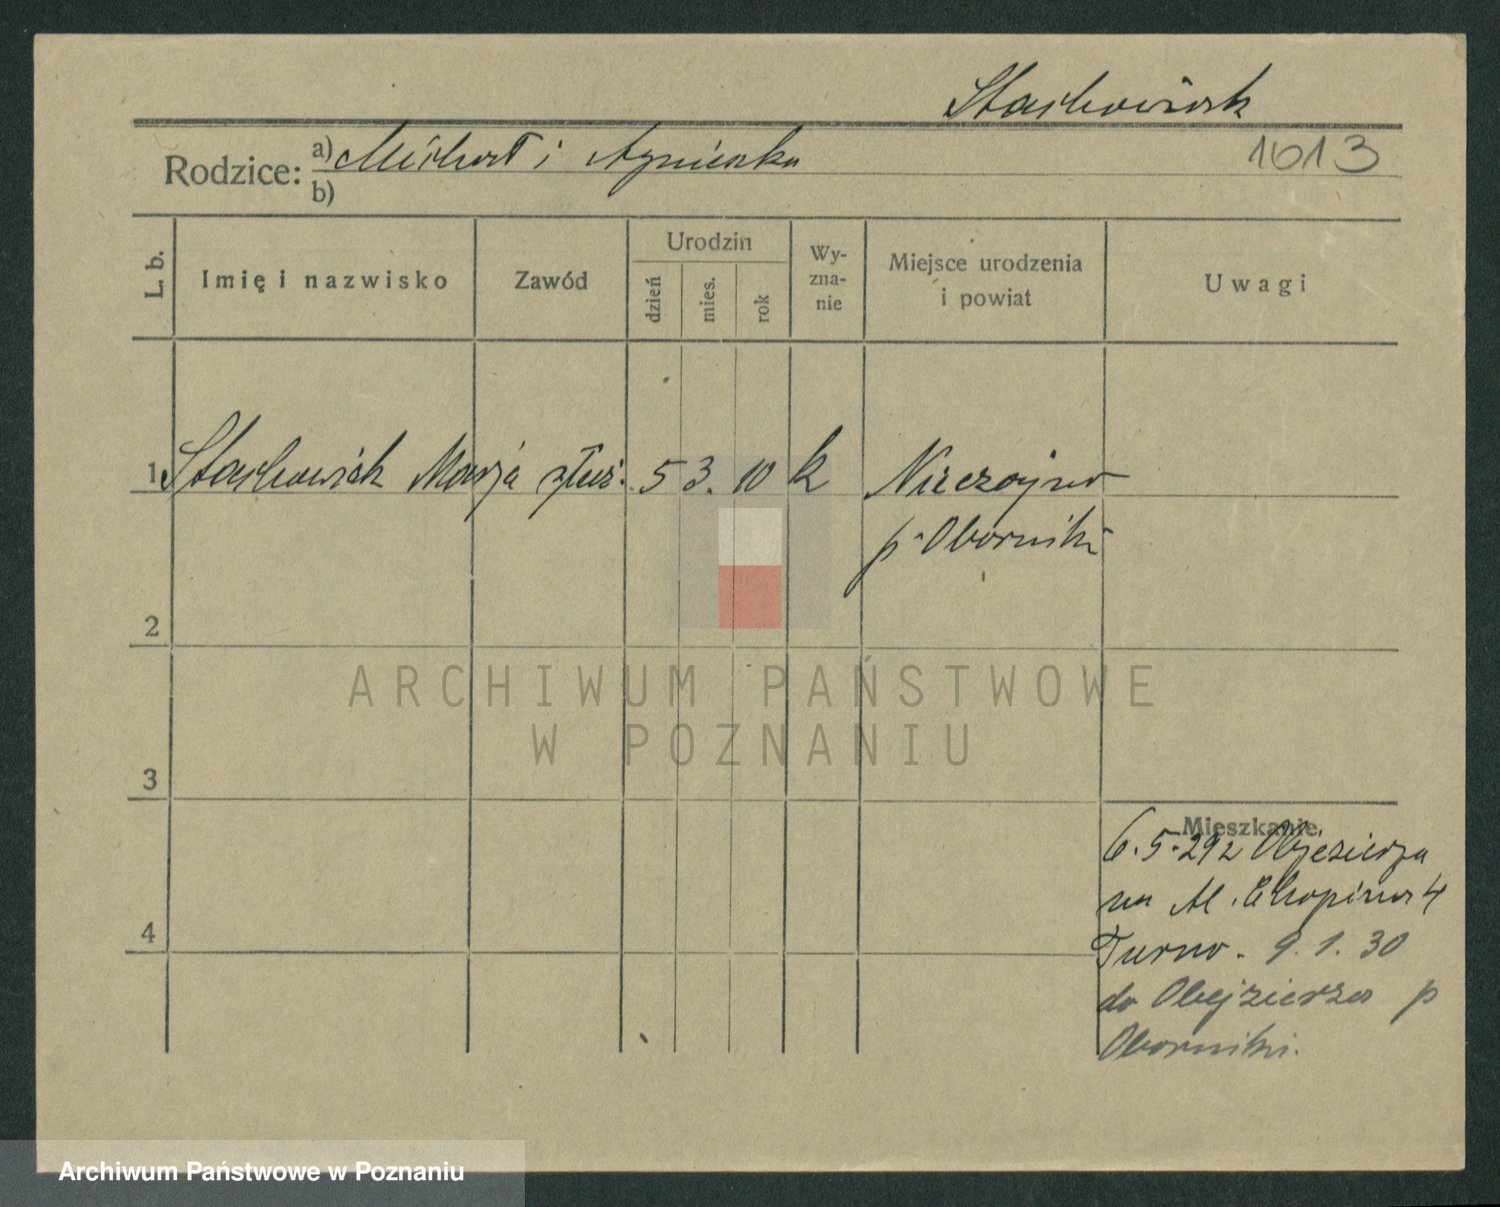 Stachowiak
Rodzice: a) Michał i Agnieszka
1613
b)
L. b.
Imię i nazwisko
Zawód
Urodzin
dzień
mies.
rok
Wy-
zna-
nie
Miejsce urodzenia
i powiat
Uwagi
1 Stachowiak Marja służ. 5 3. 10 k
p. Oborniki
2
ARCHIWUM PAŃSTWOWE
W POZNANIU
3
Mieszkanie
6.5.29 z Objezierza
na Al. Chopina 4
9.1.30
4
do Obejzierza p
Oborniki.
Archiwum Państwowe w Poznaniu